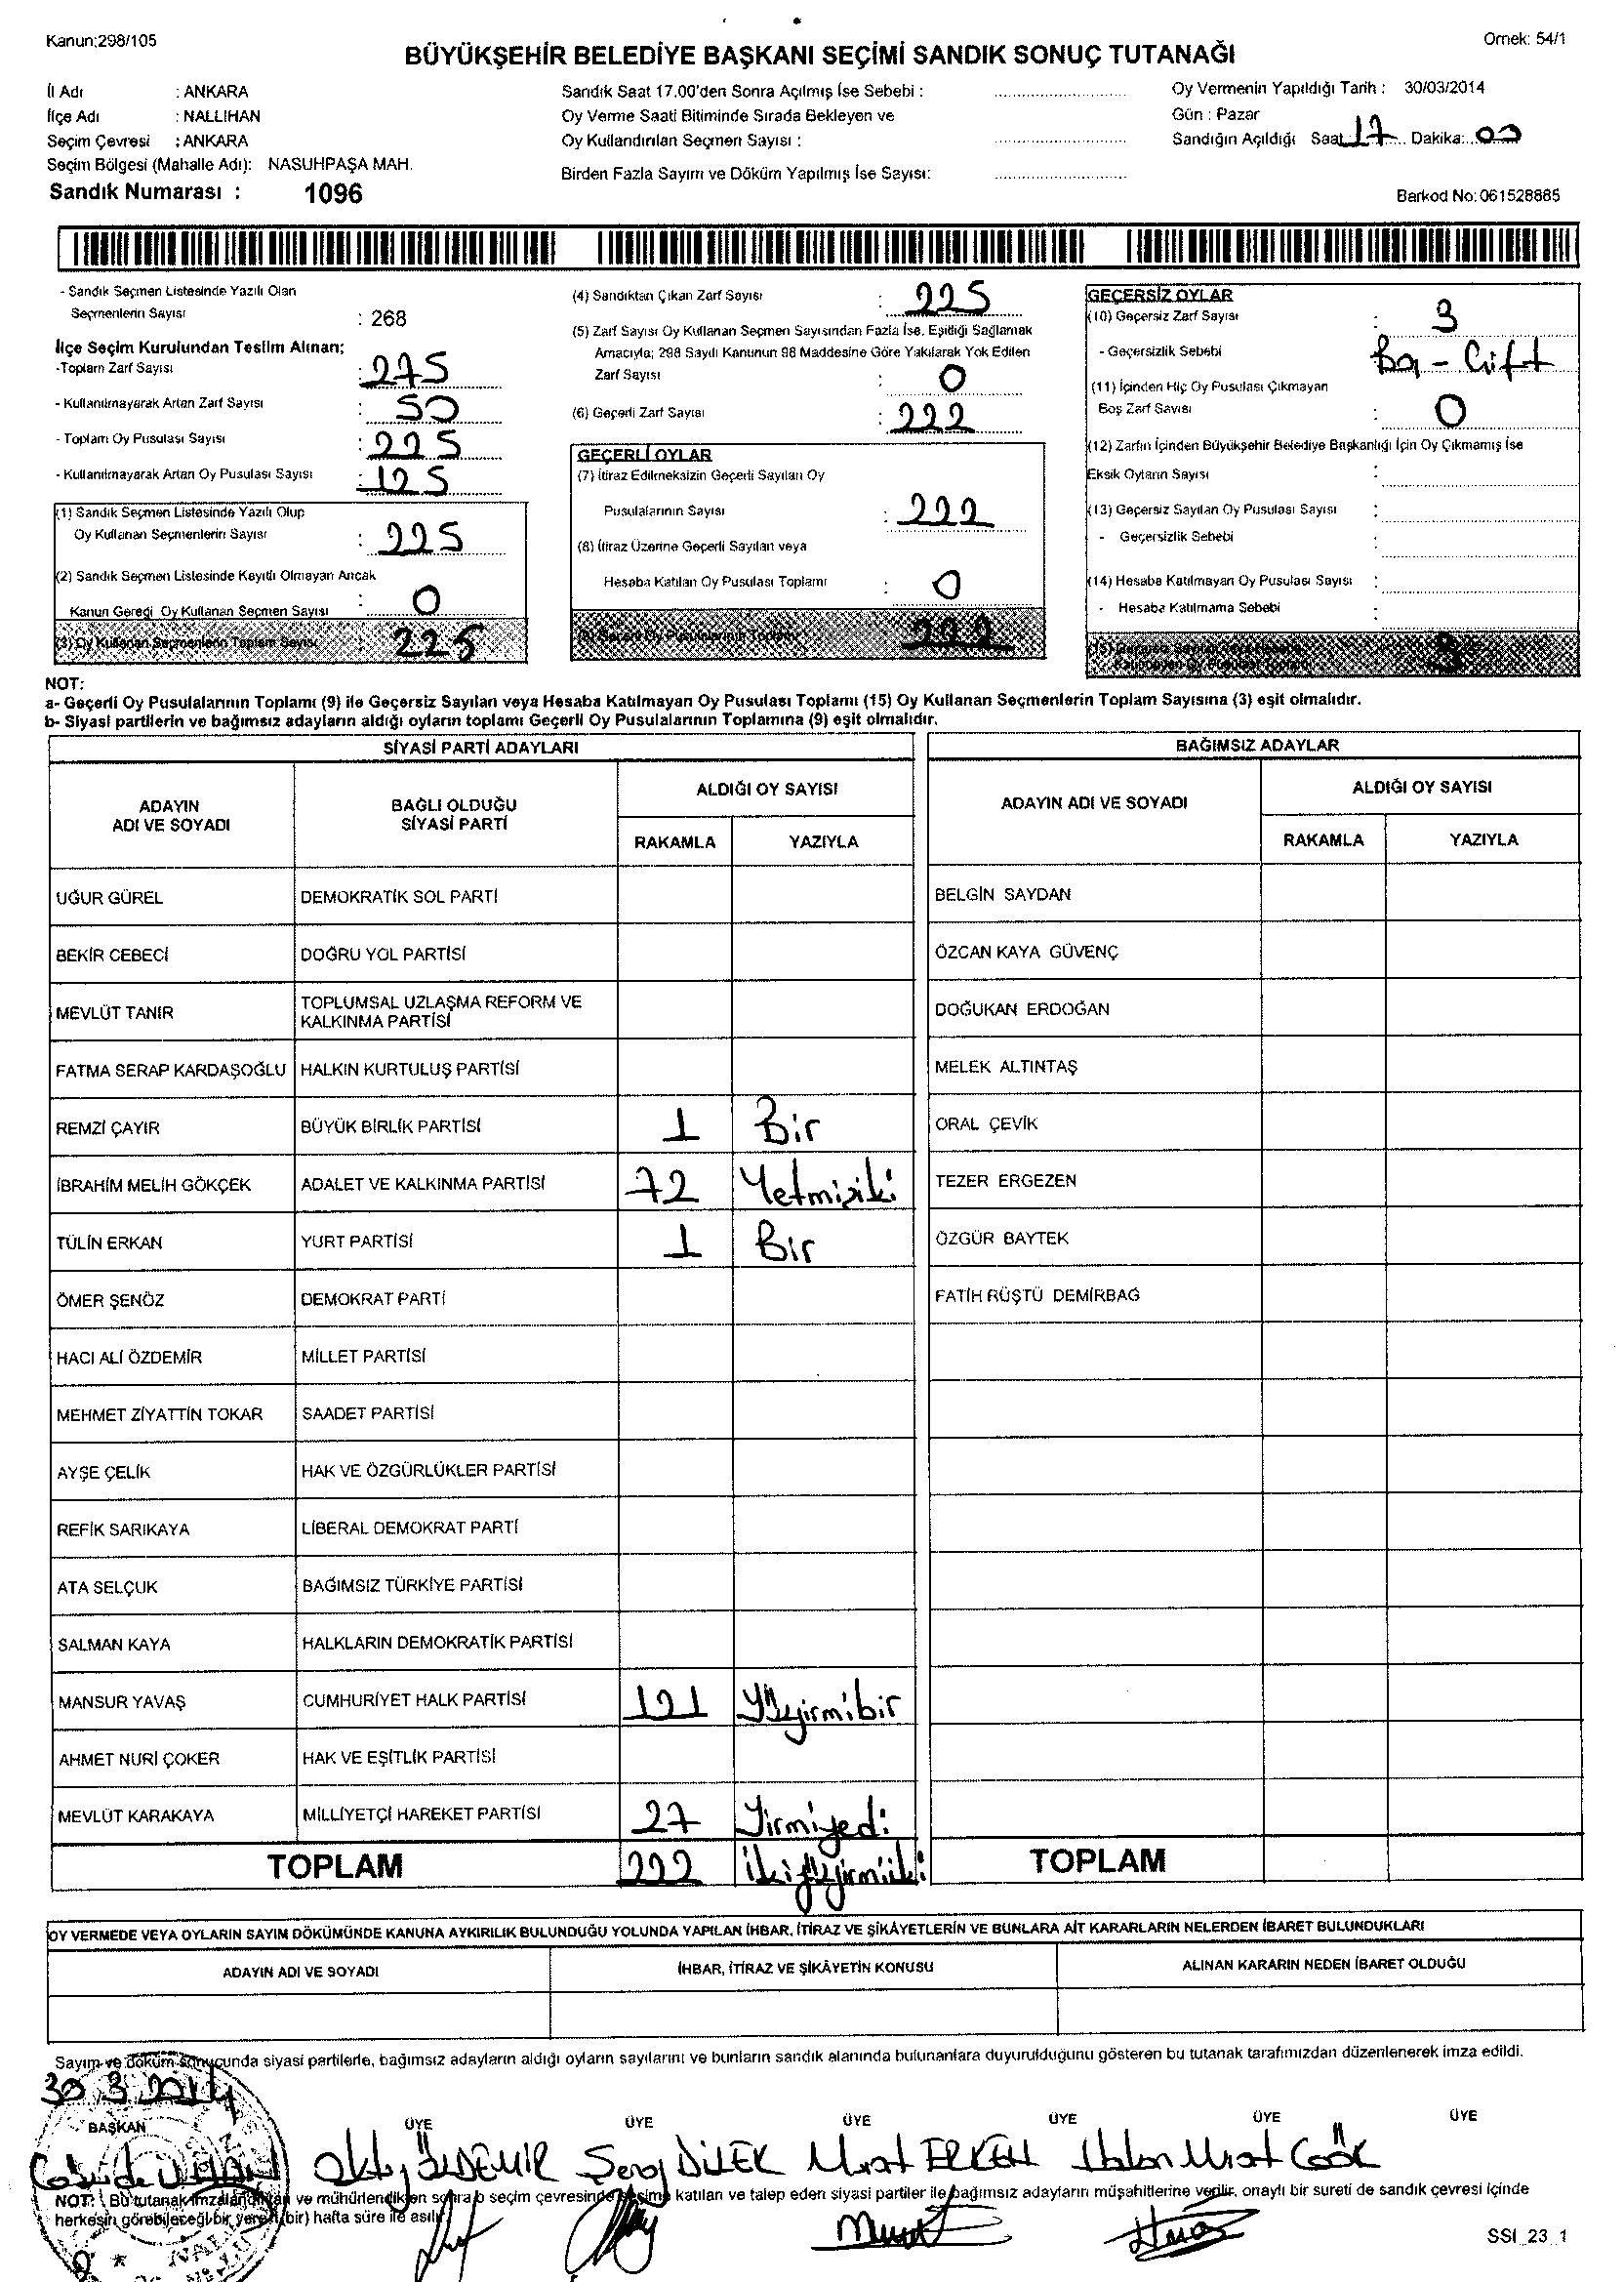 Kanun:298/105
Örnek: 54/1
BÜYÜKŞEHİR BELEDİYE BAŞKANI SEÇİMİ SANDIK SONUÇ TUTANAĞI
İl Adı : ANKARA
İlçe Adı : NALLIHAN
Seçim Çevresi : ANKARA
Seçim Bölgesi (Mahalle Adı): NASUHPAŞA MAH.
Sandık Numarası : 1096
Sandık Saat 17.00'den Sonra Açılmış İse Sebebi :
Oy Verme Saati Bitiminde Sırada Bekleyen ve
Oy Kullandırılan Seçmen Sayısı :
Birden Fazla Sayım ve Döküm Yapılmış İse Sayısı:
Oy Vermenin Yapıldığı Tarih : 30/03/2014
Gün : Pazar
Sandığın Açıldığı Saat 17 Dakika: 00
Barkod No: 061528885
- Sandık Seçmen Listesinde Yazılı Olan
Seçmenlerin Sayısı : 268
İlçe Seçim Kurulundan Teslim Alınan;
-Toplam Zarf Sayısı : 275
- Kullanılmayarak Artan Zarf Sayısı : 50
- Toplam Oy Pusulası Sayısı : 225
- Kullanılmayarak Artan Oy Pusulası Sayısı : 125
(1) Sandık Seçmen Listesinde Yazılı Olup
Oy Kullanan Seçmenlerin Sayısı : 225
(2) Sandık Seçmen Listesinde Kayıtlı Olmayan Ancak
Kanun Gereği Oy Kullanan Seçmen Sayısı : 0
(3) Oy Kullanan Seçmenlerin Toplam Sayısı : 225
(4) Sandıktan Çıkan Zarf Sayısı : 225
(5) Zarf Sayısı Oy Kullanan Seçmen Sayısından Fazla İse, Eşitliği Sağlamak
Amacıyla; 298 Sayılı Kanunun 98 Maddesine Göre Yakılarak Yok Edilen
Zarf Sayısı : 0
(6) Geçerli Zarf Sayısı : 222
GEÇERLİ OYLAR
(7) İtiraz Edilmeksizin Geçerli Sayılan Oy
Pusulalarının Sayısı : 222
(8) İtiraz Üzerine Geçerli Sayılan veya
Hesaba Katılan Oy Pusulası Toplamı : 0
(9) Geçerli Oy Pusulalarının Toplamı 222
GEÇERSİZ OYLAR
(10) Geçersiz Zarf Sayısı : 3
- Geçersizlik Sebebi : Boş - Çift
(11) İçinden Hiç Oy Pusulası Çıkmayan
Boş Zarf Sayısı : 0
(12) Zarfın İçinden Büyükşehir Belediye Başkanlığı İçin Oy Çıkmamış İse
Eksik Oyların Sayısı :
(13) Geçersiz Sayılan Oy Pusulası Sayısı :
- Geçersizlik Sebebi :
(14) Hesaba Katılmayan Oy Pusulası Sayısı :
- Hesaba Katılmama Sebebi :
(15) Geçersiz Sayılan veya Hesaba
Katılmayan Oy Pusulası Toplamı 3
NOT:
a- Geçerli Oy Pusulalarının Toplamı (9) ile Geçersiz Sayılan veya Hesaba Katılmayan Oy Pusulası Toplamı (15) Oy Kullanan Seçmenlerin Toplam Sayısına (3) eşit olmalıdır.
b- Siyasi partilerin ve bağımsız adayların aldığı oyların toplamı Geçerli Oy Pusulalarının Toplamına (9) eşit olmalıdır.
SİYASİ PARTİ ADAYLARI
ADAYIN ADI VE SOYADI BAĞLI OLDUĞU SİYASİ PARTİ ALDIĞI OY SAYISI
RAKAMLA YAZIYLA
UĞUR GÜREL DEMOKRATİK SOL PARTİ
BEKİR CEBECİ DOĞRU YOL PARTİSİ
MEVLÜT TANIR TOPLUMSAL UZLAŞMA REFORM VE
KALKINMA PARTİSİ
FATMA SERAP KARDAŞOĞLU HALKIN KURTULUŞ PARTİSİ
REMZİ ÇAYIR BÜYÜK BİRLİK PARTİSİ 1 Bir
İBRAHİM MELİH GÖKÇEK ADALET VE KALKINMA PARTİSİ 72 Yetmişiki
TÜLİN ERKAN YURT PARTİSİ 1 Bir
ÖMER ŞENÖZ DEMOKRAT PARTİ
HACI ALİ ÖZDEMİR MİLLET PARTİSİ
MEHMET ZİYATTİN TOKAR SAADET PARTİSİ
AYŞE ÇELİK HAK VE ÖZGÜRLÜKLER PARTİSİ
REFİK SARIKAYA LİBERAL DEMOKRAT PARTİ
ATA SELÇUK BAĞIMSIZ TÜRKİYE PARTİSİ
SALMAN KAYA HALKLARIN DEMOKRATİK PARTİSİ
MANSUR YAVAŞ CUMHURİYET HALK PARTİSİ 121 Yüzyirmibir
AHMET NURİ ÇOKER HAK VE EŞİTLİK PARTİSİ
MEVLÜT KARAKAYA MİLLİYETÇİ HAREKET PARTİSİ 27 Yirmiyedi
TOPLAM 222 İkiyüzyirmiiki
BAĞIMSIZ ADAYLAR
ADAYIN ADI VE SOYADI ALDIĞI OY SAYISI
RAKAMLA YAZIYLA
BELGİN SAYDAN
ÖZCAN KAYA GÜVENÇ
DOĞUKAN ERDOĞAN
MELEK ALTINTAŞ
ORAL ÇEVİK
TEZER ERGEZEN
ÖZGÜR BAYTEK
FATİH RÜŞTÜ DEMİRBAĞ
TOPLAM
OY VERMEDE VEYA OYLARIN SAYIM DÖKÜMÜNDE KANUNA AYKIRILIK BULUNDUĞU YOLUNDA YAPILAN İHBAR, İTİRAZ VE ŞİKÂYETLERİN VE BUNLARA AİT KARARLARIN NELERDEN İBARET BULUNDUKLARI
ADAYIN ADI VE SOYADI İHBAR, İTİRAZ VE ŞİKÂYETİN KONUSU ALINAN KARARIN NEDEN İBARET OLDUĞU
Sayım ve döküm sonucunda siyasi partilerle, bağımsız adayların aldığı oyların sayılarını ve bunların sandık alanında bulunanlara duyurulduğunu gösteren bu tutanak tarafımızdan düzenlenerek imza edildi.
30 3 2014
BAŞKAN ÜYE ÜYE ÜYE ÜYE ÜYE ÜYE
Oktay ÖZDEMİR Şenay DİLEK Murat ERKEN Hakan Murat GÖK
NOT: Bu tutanak imzalandıktan ve mühürlendikten sonra o seçim çevresinde seçime katılan ve talep eden siyasi partiler ile bağımsız adayların müşahitlerine verilir, onaylı bir sureti de sandık çevresi içinde
herkesin görebileceği bir yere 1 (bir) hafta süre ile asılır.
SSI_23_1